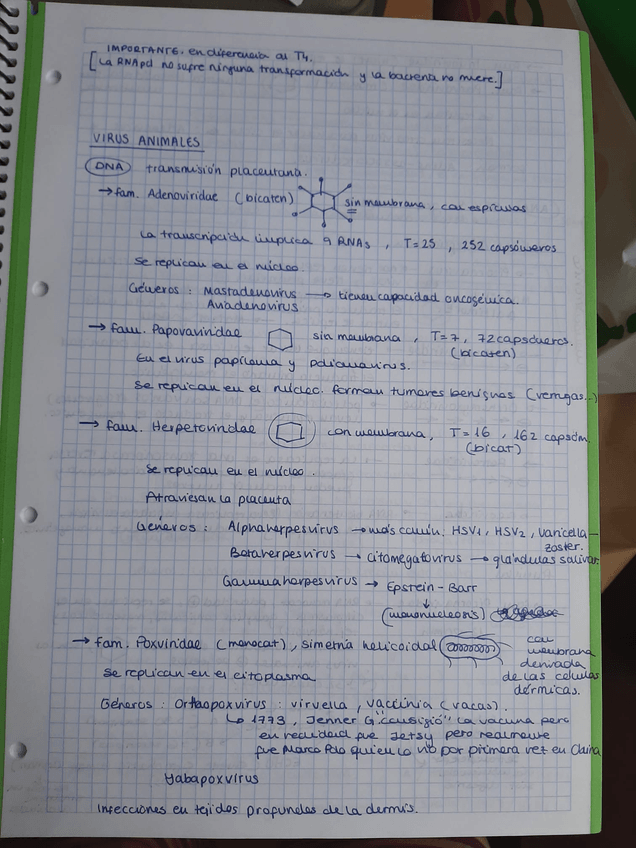 IMPORTANTE, en diferencia al T4.
[La RNApd no sufre ninguna transformación y la bacteria no muere.]
VIRUS ANIMALES
DNA transmisión placentaria.
→ fam. Adenoviridae (bicaten) sin membrana, con espículas
La transcripción implica 9 RNAs, T=25, 252 capsómeros
Se replican en el núcleo.
Géneros: Mastadenovirus → tienen capacidad oncogénica.
Aviadenovirus
→ fam. Papovaviridae sin membrana, T=7, 72 capsómeros.
(bicaten)
En el virus papiloma y poliomavirus.
Se replican en el núcleo. forman tumores benignos (verrugas...)
→ fam. Herpetoviridae con membrana, T=16, 162 capsóm.
(bicat)
Se replican en el núcleo.
Atraviesan la placenta
Géneros: Alphaherpesvirus → más común. HSV1, HSV2, Varicella-
zoster.
Betaherpesvirus → citomegalovirus → glándulas salivar.
Gammaherpesvirus → Epstein-Barr
↓
(mononucleosis)
→ fam. Poxviridae (monocat), simetría helicoidal con
membrana
derivada
de las células
dérmicas.
Se replican en el citoplasma
Géneros: Orthopoxvirus: viruella, vaccinia (vacas).
↳ 1773, Jenner G. "consiguió" la vacuna pero
en realidad fue Jetsy pero realmente
fue Marco Polo quien lo vio por primera vez en China
Yabapoxvirus
Infecciones en tejidos profundos de la dermis.